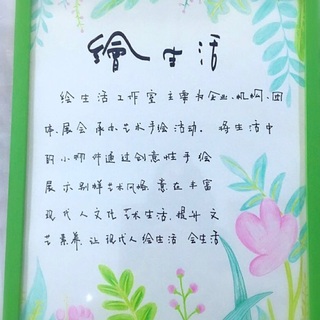 繪生活
绘生活工作室主要为企业、机构、团
体、展会承办艺术手绘活动。将生活中
的小物件通过创意性手绘
展示别样艺术风格，意在丰富
现代人文化艺术生活，提升文
艺素养，让现代人绘生活 会生活